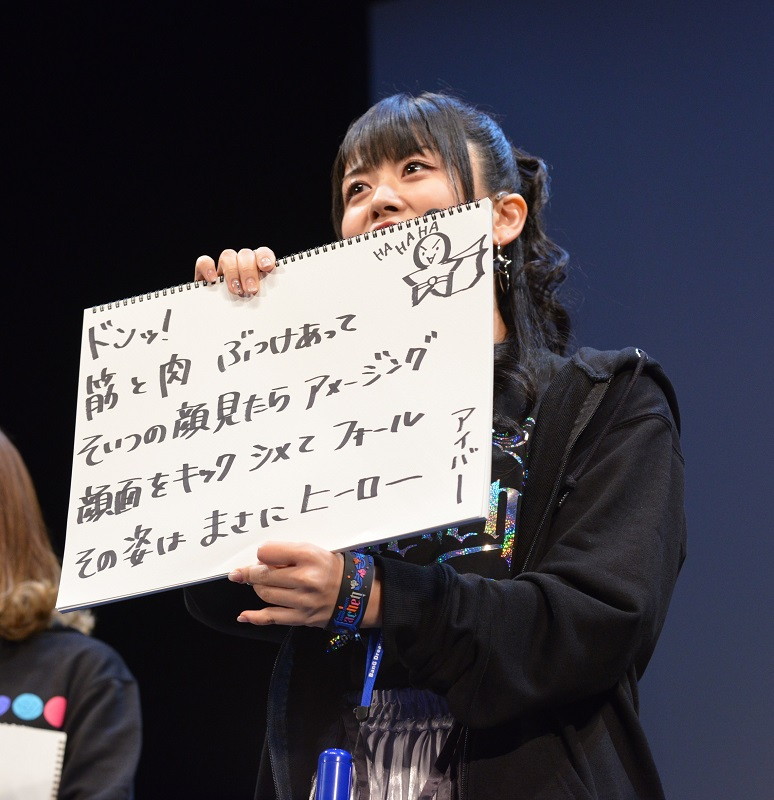 HA HA HA
ドンッ!
筋と肉 ぶつけあって
そいつの顔見たら アメージング
顔面をキック シメて フォール
その姿は まさに ヒーロー
アイバー
BanG Drea